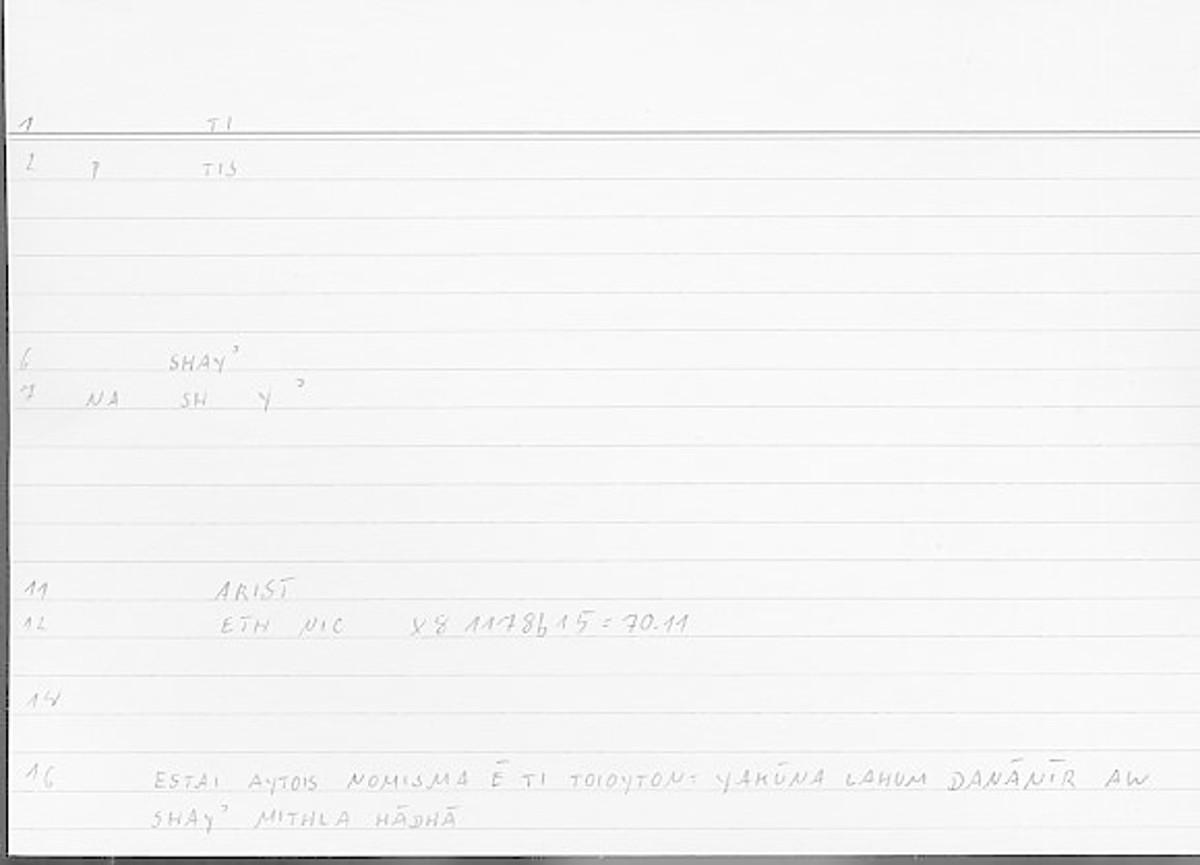 1 TI
2 P TIS
6 SHAYʾ
7 NA SH Y ʾ
11 ARIST
12 ETH NIC X8 1178b15 = 70.11
14
16 ESTAI AYTOIS NOMISMA Ē TI TOIOYTON: YAKŪNA LAHUM DANĀNĪR AW
SHAYʾ MITHLA HĀDHĀ